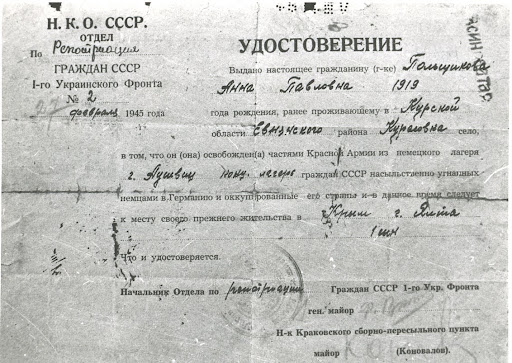 Н. К. О. СССР.
ОТДЕЛ
По Репатриации
ГРАЖДАН СССР
1-го Украинского Фронта
№ 2
27 февраля 1945 года
УДОСТОВЕРЕНИЕ
Выдано настоящее гражданину (г-ке)
Анна Павловна 1919
года рождения, ранее проживающему в Курской
области района село,
в том, что он (она) освобожден(а) частями Красной Армии из немецкого лагеря
г. Аушвиц конц. лагерь граждан СССР насильственно угнанных
немцами в Германию и оккупированные его страны и в данное время следует
к месту своего прежнего жительства в Крым г. Ялта
Что и удостоверяется.
Начальник Отдела по репатриации Граждан СССР 1-го Укр. Фронта
ген. майор
Н-к Краковского сборно-пересыльного пункта
майор (Коновалов).